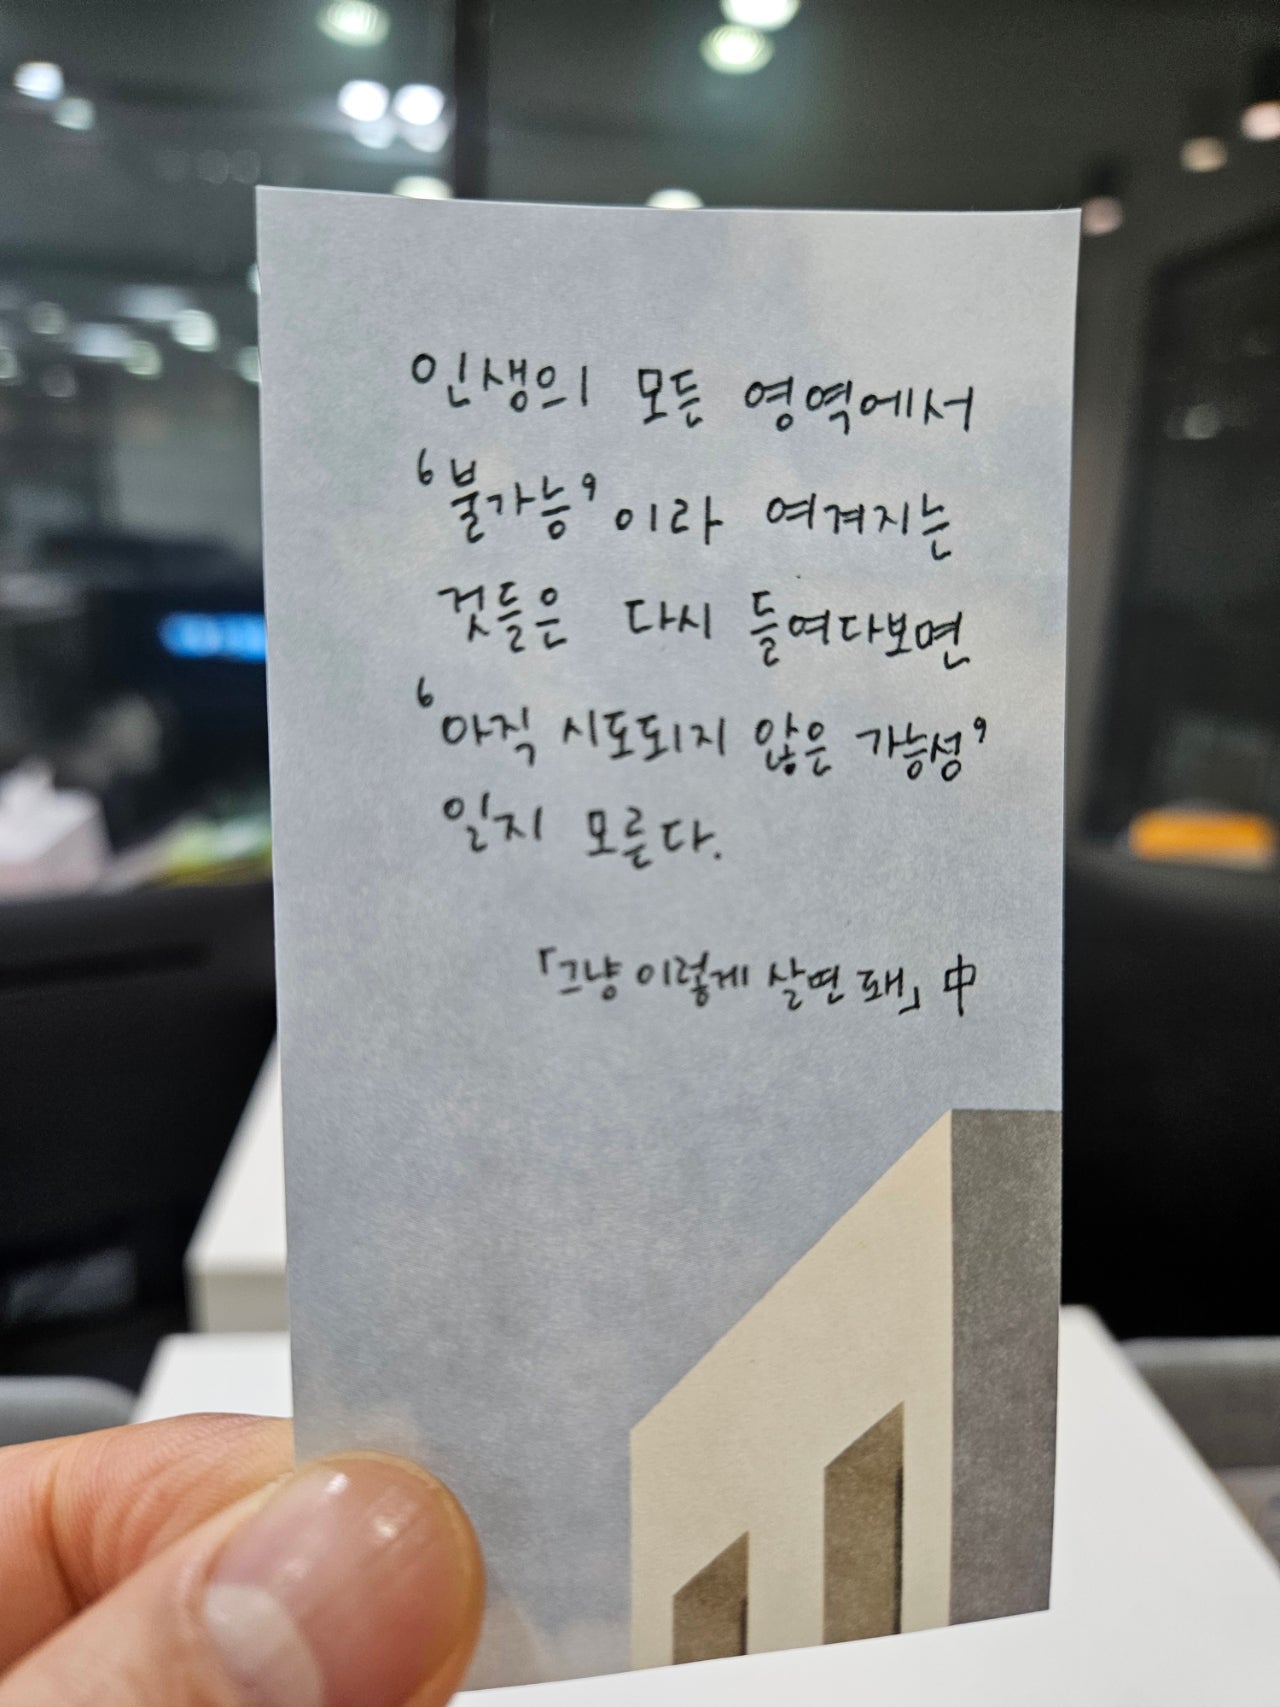 인생의 모든 영역에서
'불가능'이라 여겨지는
것들은 다시 들여다보면
'아직 시도되지 않은 가능성'
일지 모른다.
「그냥 이렇게 살면 돼」 中